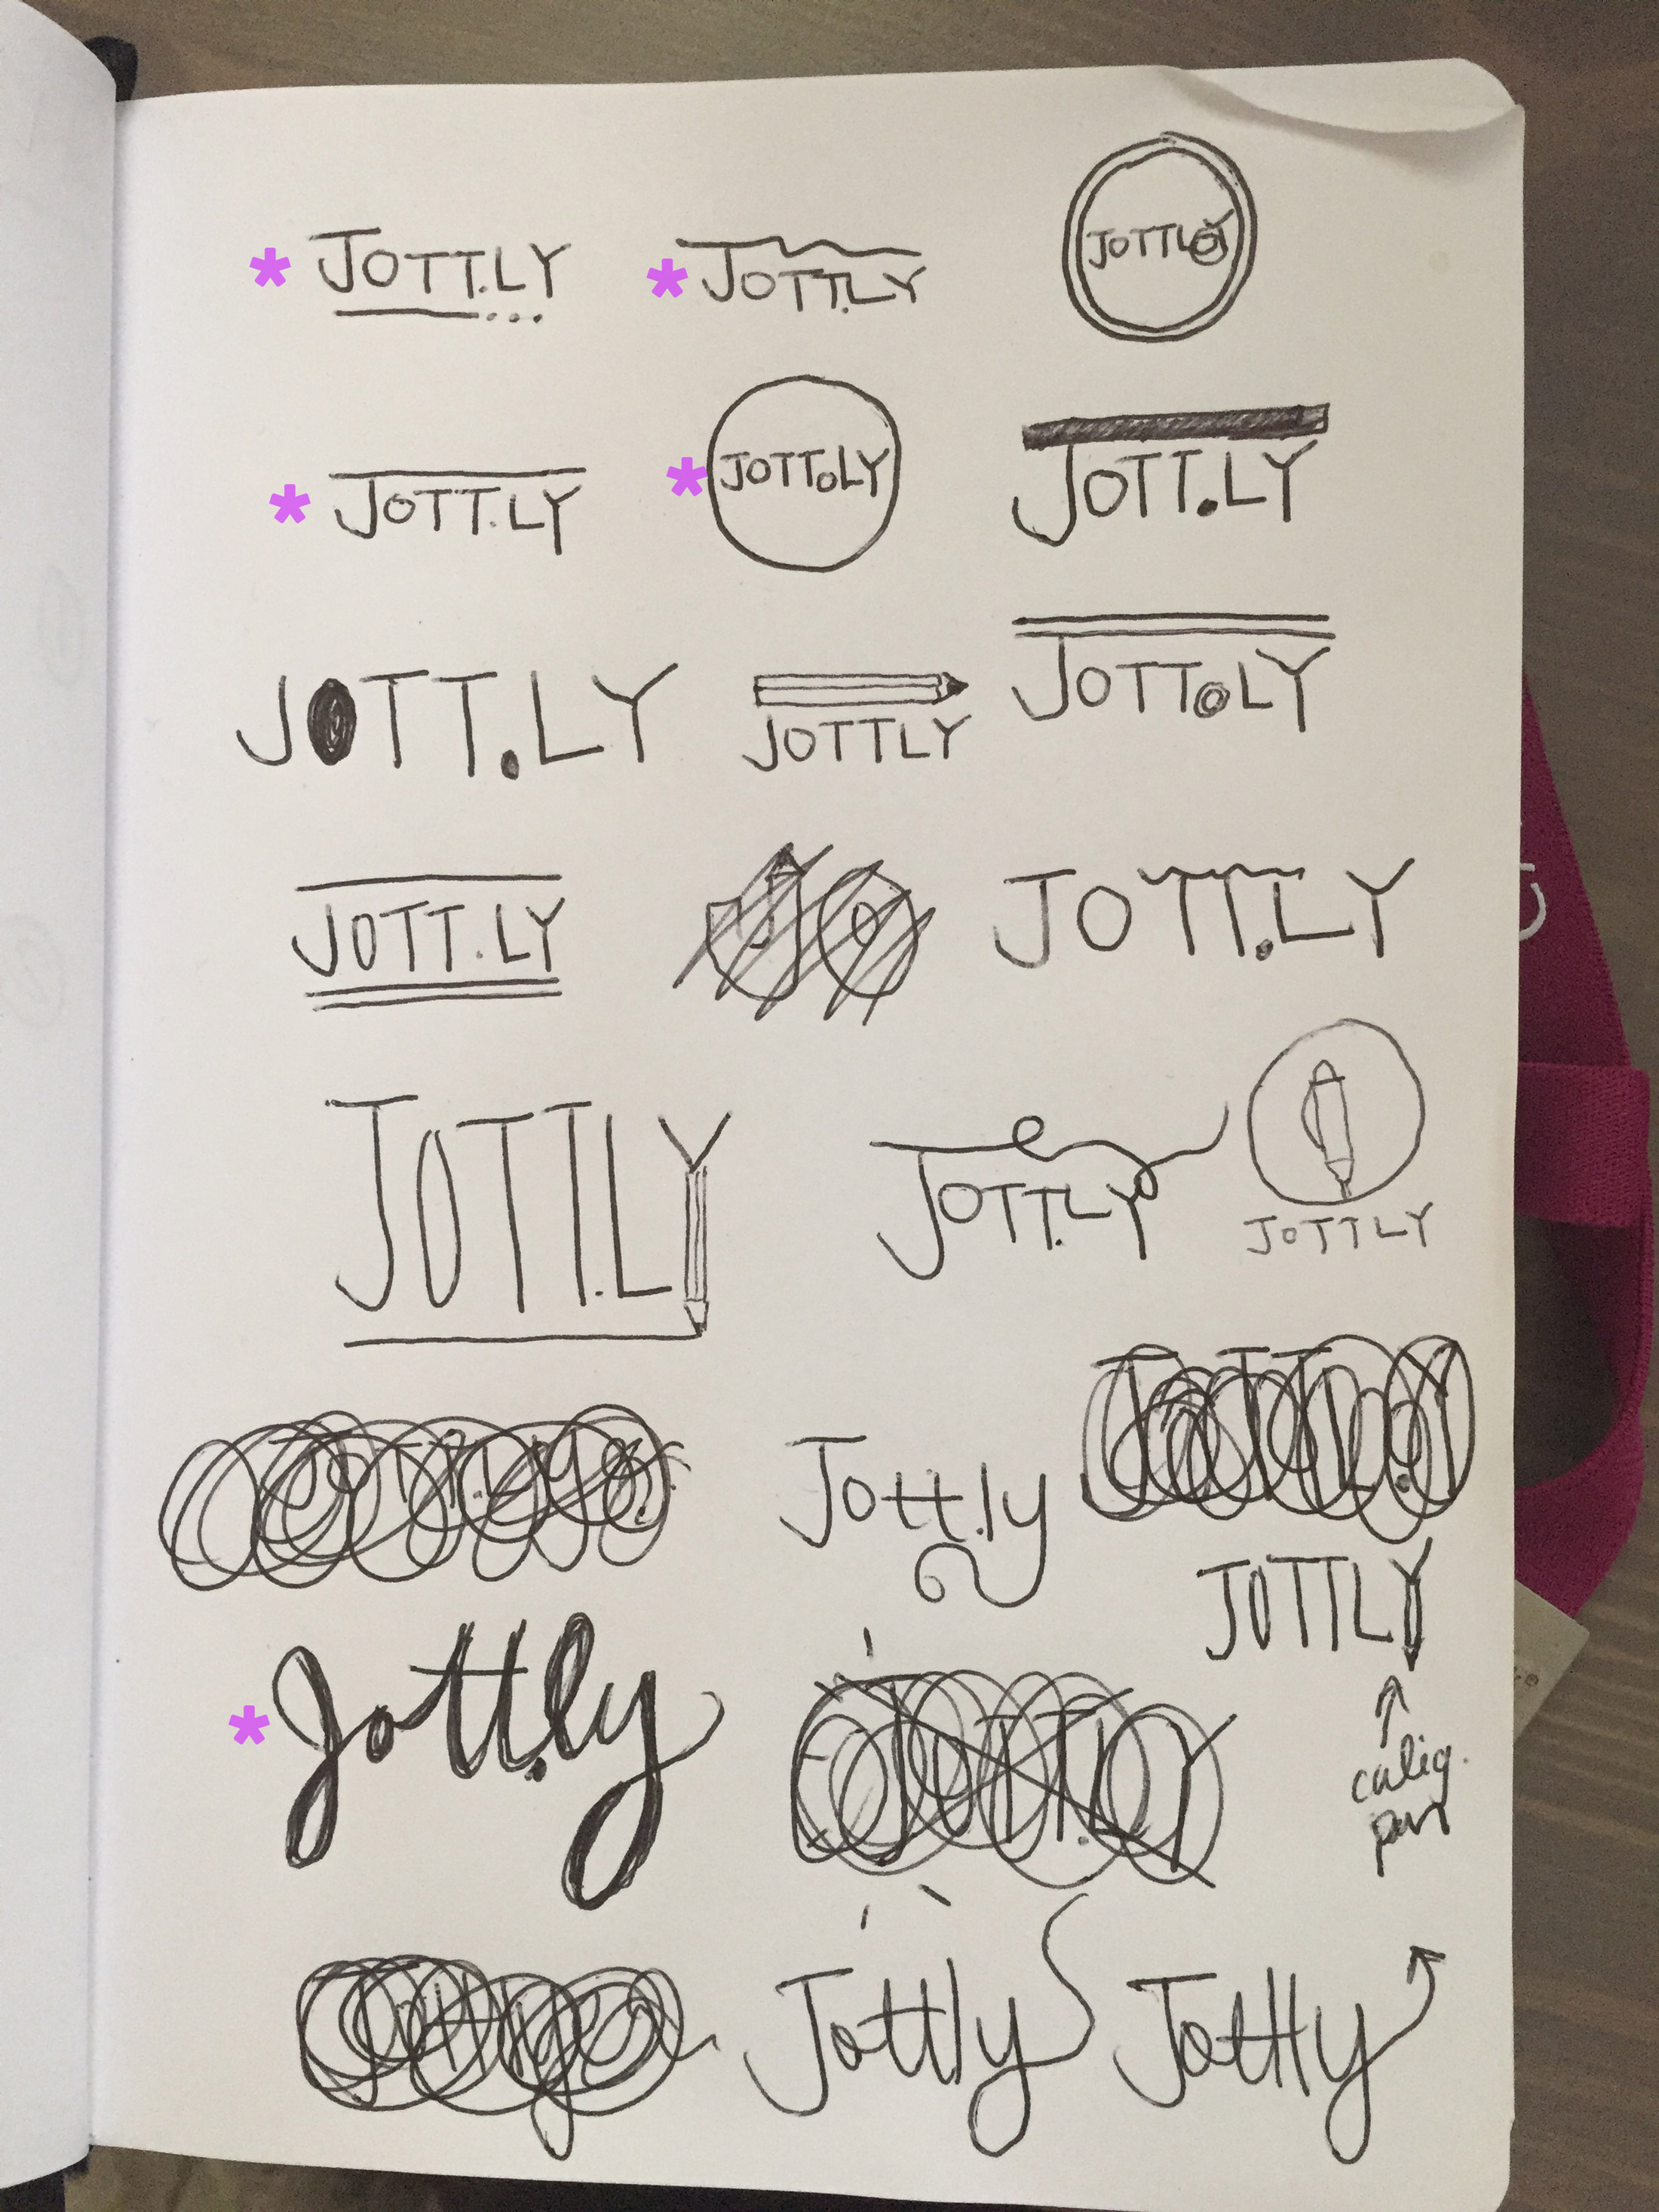 * JOTT.LY
* JOTT.LY
JOTTLY
* JOTT.LY
* JOTT.LY
JOTT.LY
JOTT.LY
JOTTLY
JOTT.LY
JOTT.LY
JO
JOTT.LY
JOTT.LY
JOTT.LY
JOTTLY
Jott.ly
JOTT.LY
JOTTLY
calig.
pen
* Jott.ly
JOTT.LY
Jottly
Jottly